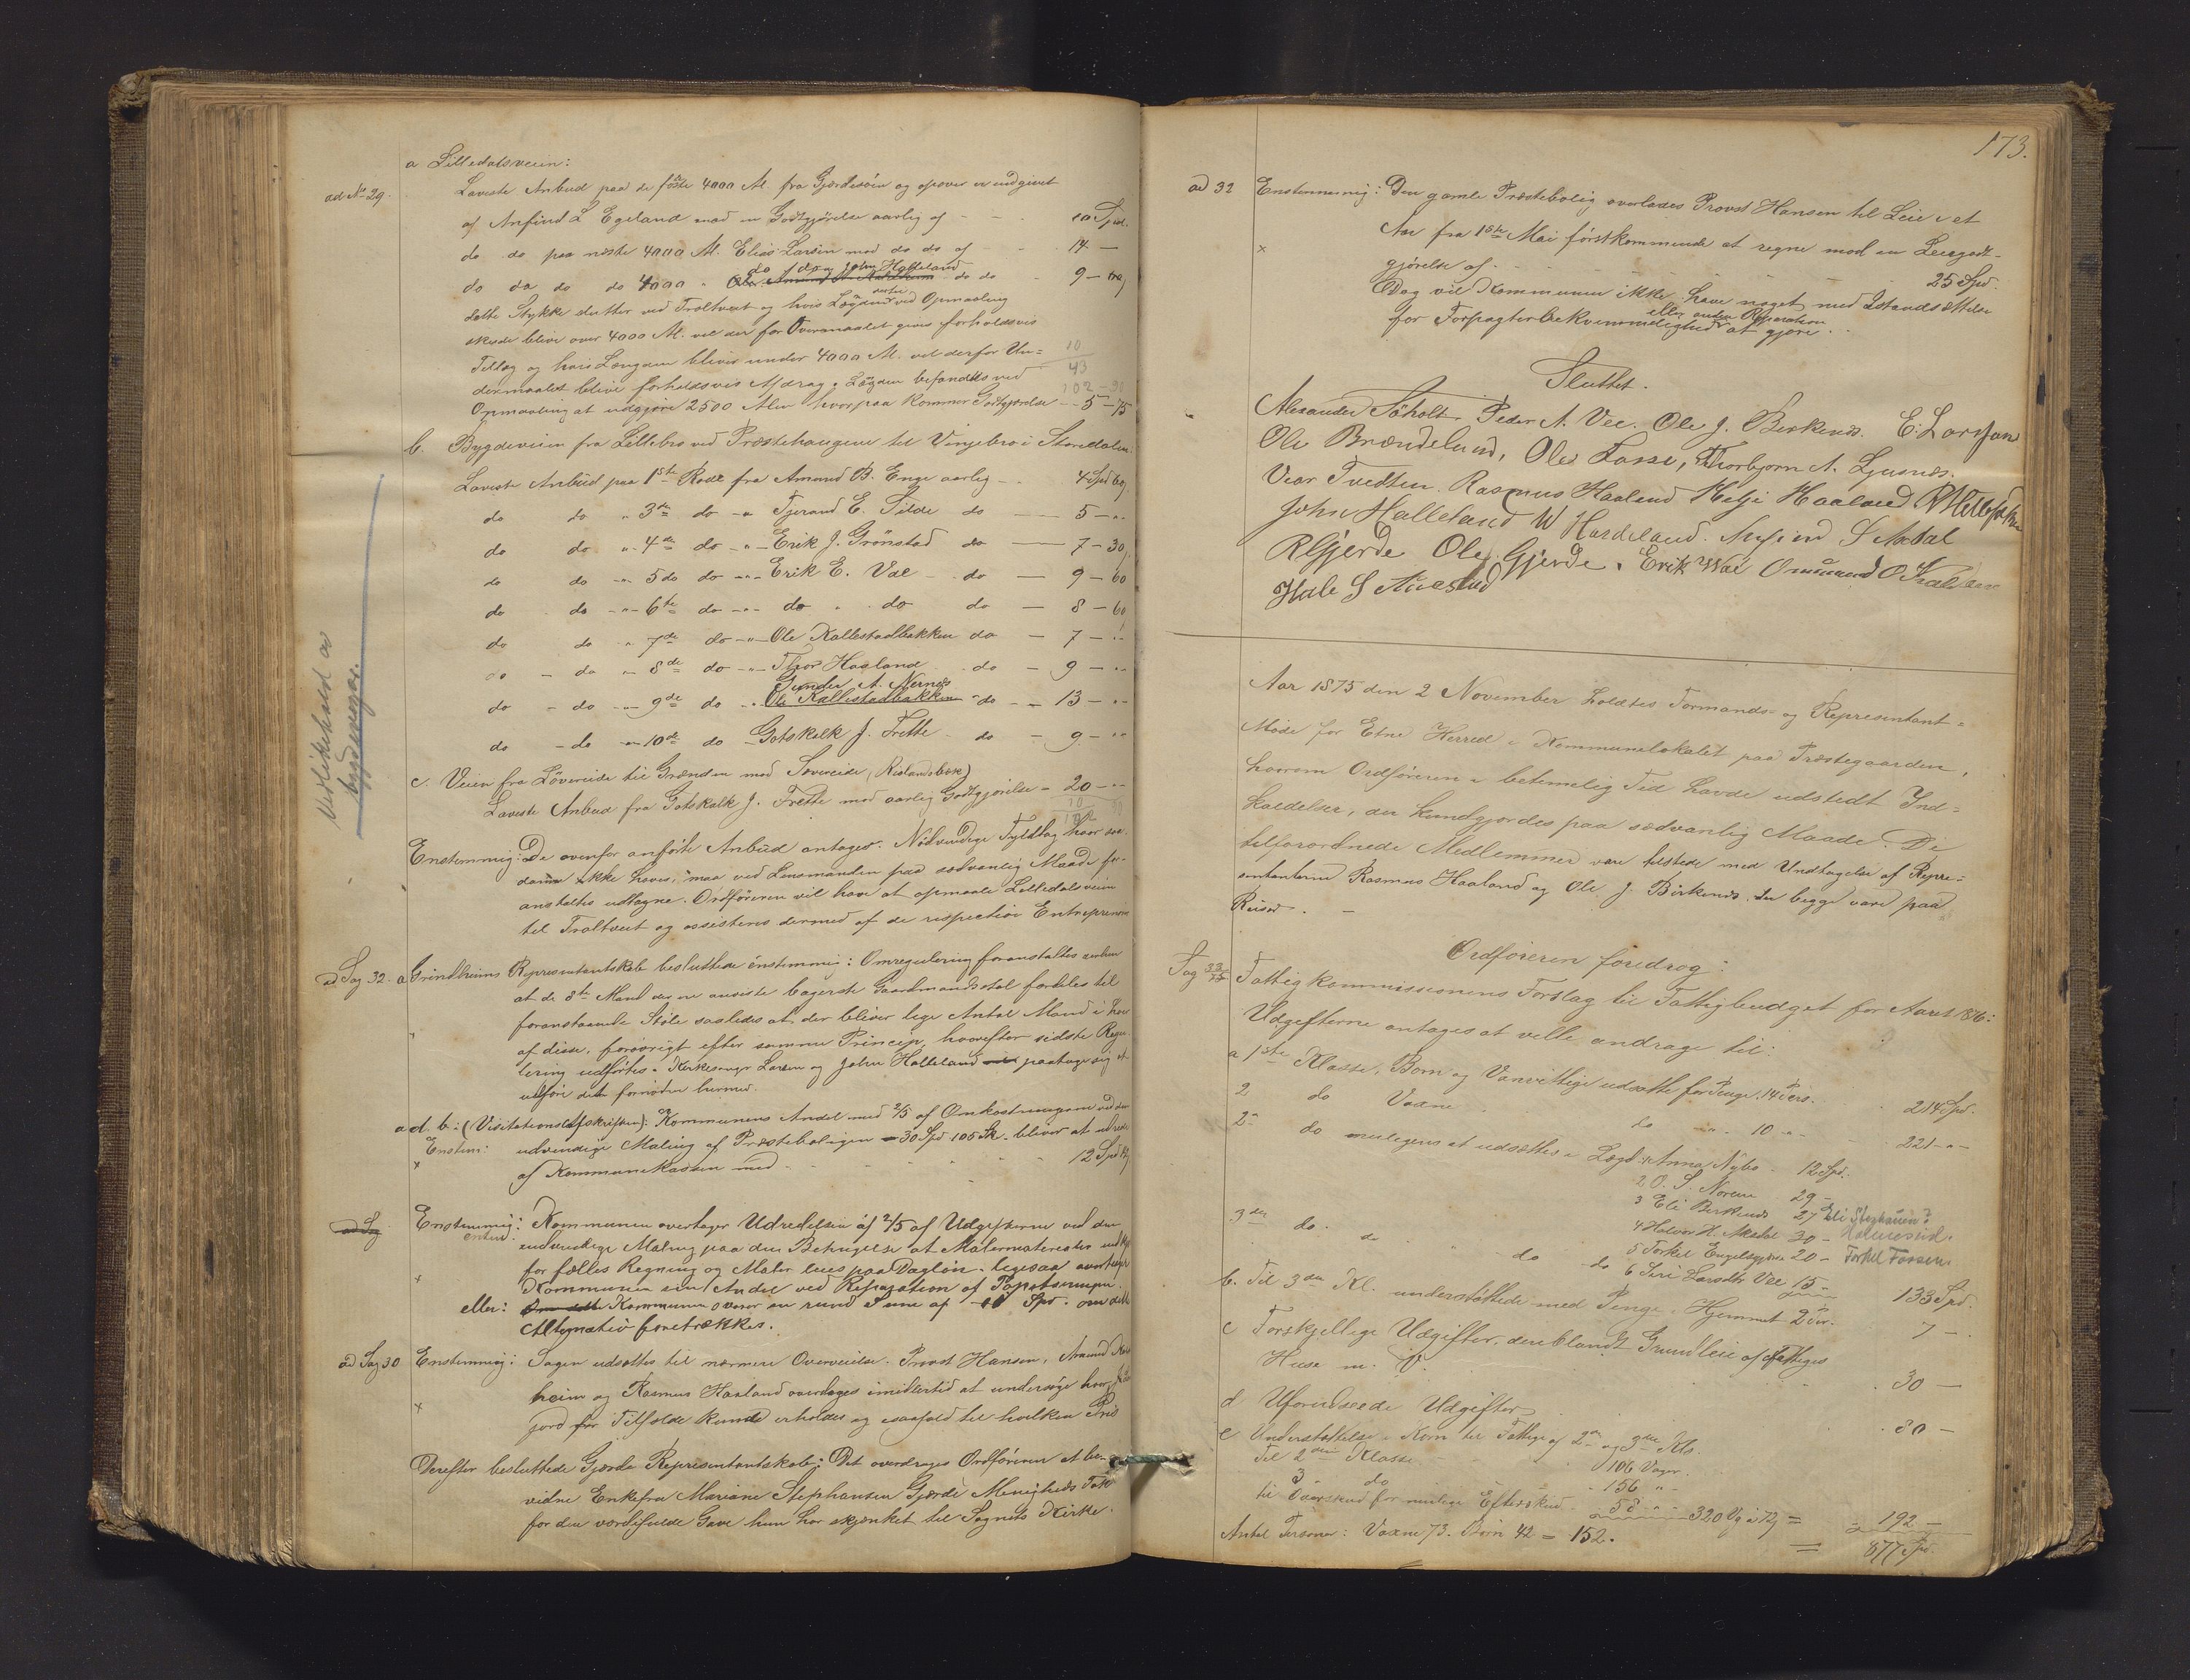 a Lilledalsveien:
ad No 29. Laveste Anbud paa de første 4000 Al. fra Gjærdesøen og opover er indgivet
af Anfind L Egeland mod en Godtgjørelse aarlig af - - - 10 Spd.
do do paa næste 4000 Al. Elias Larsen mod do do af - - 14 —
do do do do 4000 " do do og John Halleland do do - 9 —
dette Stykke slutter ved Traltveit og hvis Længden derfra ved Opmaaling
skulde blive over 4000 Al. vil der for Overmaalet gives forholdsvis
Tillæg og hvis Længden bliver under 4000 Al. vil derfor Un=
dermaalet blive forholdsvis Afdrag. Længden befandtes ved
Opmaaling at udgjøre 2500 Alen hvorpaa kommer Godtgjørelse - 5 - 75
10
43
102 - 90
b. Bygdeveien fra Lillebro ved Præstehaugene til Vinjebro i Stordalen.
Laveste Anbud paa 1ste Rode fra Amund B. Enge aarlig - - 4 Spd 60
do do " 3de do - " Tjerand E. Silde do — 5 - "
do do - " 4de do - " - Erik J. Grönstad do — 7 - 30
do do - " 5 do do - " - Erik E. Vae - do — 9 - 60
do do - " - 6te do - " - do " do do — 8 - 60
do do " 7de do - " - Ole Kallestadbakken do — 7 - "
do - do - " 8de do - " - Thor Haaland do — 9 - "
Gunder A. Nernes
do - do - " 9de do - " Ole Kallestadbakken do - - 13 - "
do - do - " - 10de do - Gotskalk J. Frette do — 9 - "
c. Veien fra Lövereide til Grændsen mod Sövereide (Rislandsbæk)
Laveste Anbud fra Gotskalk J. Frette mod aarlig Godtgjörelse - 20 - "
Vedlikehald av
bygdevegar.
Enstemmig: De ovenfor anførte Anbud antages. Nödvendige Fyldtag hvor saa=
danne ikke haves, maa ved Lensmanden paa sædvanlig Maade for=
anstaltes udtagne. Ordføreren vil have at opmaale Lilledalsveien
til Traltveit og assisteres dermed af de respective Entreprenører
ad Sag 32. a Grindheims Repræsentantskab besluttede énstemmig: Omregulering foranstaltes
at de 8te Mand der ere anviste bagerste Gaardmandsstol fordeles til
foranstaaende Stole saaledes at der bliver lige Antal Mand i hver
af disse, forøvrigt efter samme Princip, hvorefter sidste Regu
lering udførtes. Kirkesanger Larsen og John Halleland paatage sig at
udføre det fornødne hermed.
ad. b: (Visitations Afskriften): Kommunens Andel med 2/5 af Omkostningerne ved den
Enstem: udvendige Maling af Præsteboligen 30 Spd 105 Sk. bliver at udrede
x af Kommunekassen med - - - - - 12 Spd
ad Sag Enstemmig: Kommunen overtager Udredelsen af 2/5 af Udgifterne ved den
enten: indvendige Maling paa den Betingelse at Malermaterialier
for fælles Regning og Maler leies paa Dagløn - ligesaa overtager
x Kommunen sin Andel ved Reparation af
eller: Kommunen overør en rund Sum af Spd. om dette
Alternativ foretrækkes.
ad Sag 30 Enstemmig: Sagen udsættes til nærmere Overveielse. Provst Hansen, Amund
heim og Rasmus Haaland overdrages imidlertid at undersöge hvor
x jord for Tilfælde kunde erholdes og isaafald til hvilken Pris
Derefter besluttede Gjærde Repræsentantskab: Det overdrages Ordføreren at be=
vidne Enkefru Mariane Stephansen Gjærde Menigheds Tak
for den værdifulde Gave hun har skjænket til Sognets Kirke.
173.
ad 32 Enstemmig: Den gamle Præstebolig overlades Provst Hansen til Leie i et
Aar fra 1ste Mai førstkommende at regne mod en Leiegodt-
x gjørelse af - - - - 25 Spd.
Dog vil Kommunen ikke have noget med Istandsættelse
eller anden Reparation
for Forpagterbekvemmelighed at gjøre.
Sluttet.
Alexander Söholt Peder A. Vee. Ole J. Birkenes. E. Larssen
Ole Brændelund, Ole Lasse, Thorbjørn A. Ljusnæs.
Vear Tvedten. Rasmus Haaland Helje Haaland
John Halleland W Hardeland. Anfind S Mædal
R Gjerde Ole Gjerde. Erik Wae Ommund O
Hale S Auestad
Aar 1875 den 2 November holdtes Formands- og Representant=
Möde for Etne Herred i Kommunelokalet paa Præstegaarden,
hvorom Ordføreren i betimelig Tid havde udstedt Ind=
kaldelser, der kundgjordes paa sædvanlig Maade. De
tilforordnede Medlemmer vare tilstede med Undtagelse af Repre=
sentanterne Rasmus Haaland og Ole J. Birkenes, der begge vare paa
Reiser. —
Ordføreren foredrog:
Sag 33/75 Fattigkommissionens Forslag til Fattigbudget for Aaret 1876:
Udgifterne antages at ville andrage til:
a 1ste Klasse, Børn og Vanvittige udsatte for Penge, 14 Pers. - 214 Spd.
2 do Voxne do - " - 10 - " - - 221 - " -
2 do muligens at udsættes i Lægd: 1 Anna Nybø - 12 Spd.
2 O. S. Norene 29 -
3 Eli Birkenes 27 Eli Steghaüen?
4 Halvor H. Mædal 30 - Halvorsvik.
3die do. do do do 5 Torkel Engelsgjerde 20 - Torkel Fossen.
6 Siri Larsdtr Vee 15 - 133 Spd.
b. Til 3die Kl. understöttede med Penge i Hjemmet 2 Per. 7 —
c Forskjellige Udgifter, deriblandt Grundleie af Fattiges
Huse m. V. 30 —
d Uforudseede Udgifter - 80 —
e Understøttelse i Korn til Fattige af 2den og 3die Kls.
Til 2den Klasse 106 Vager.
3 do - 156 " -
til Uaarsaad for mulige Efterskud 58 " - 320 Vg à 72 = 192 —
Antal Personer: Voxne 73. Börn 42 = 152. = 877 Spd.